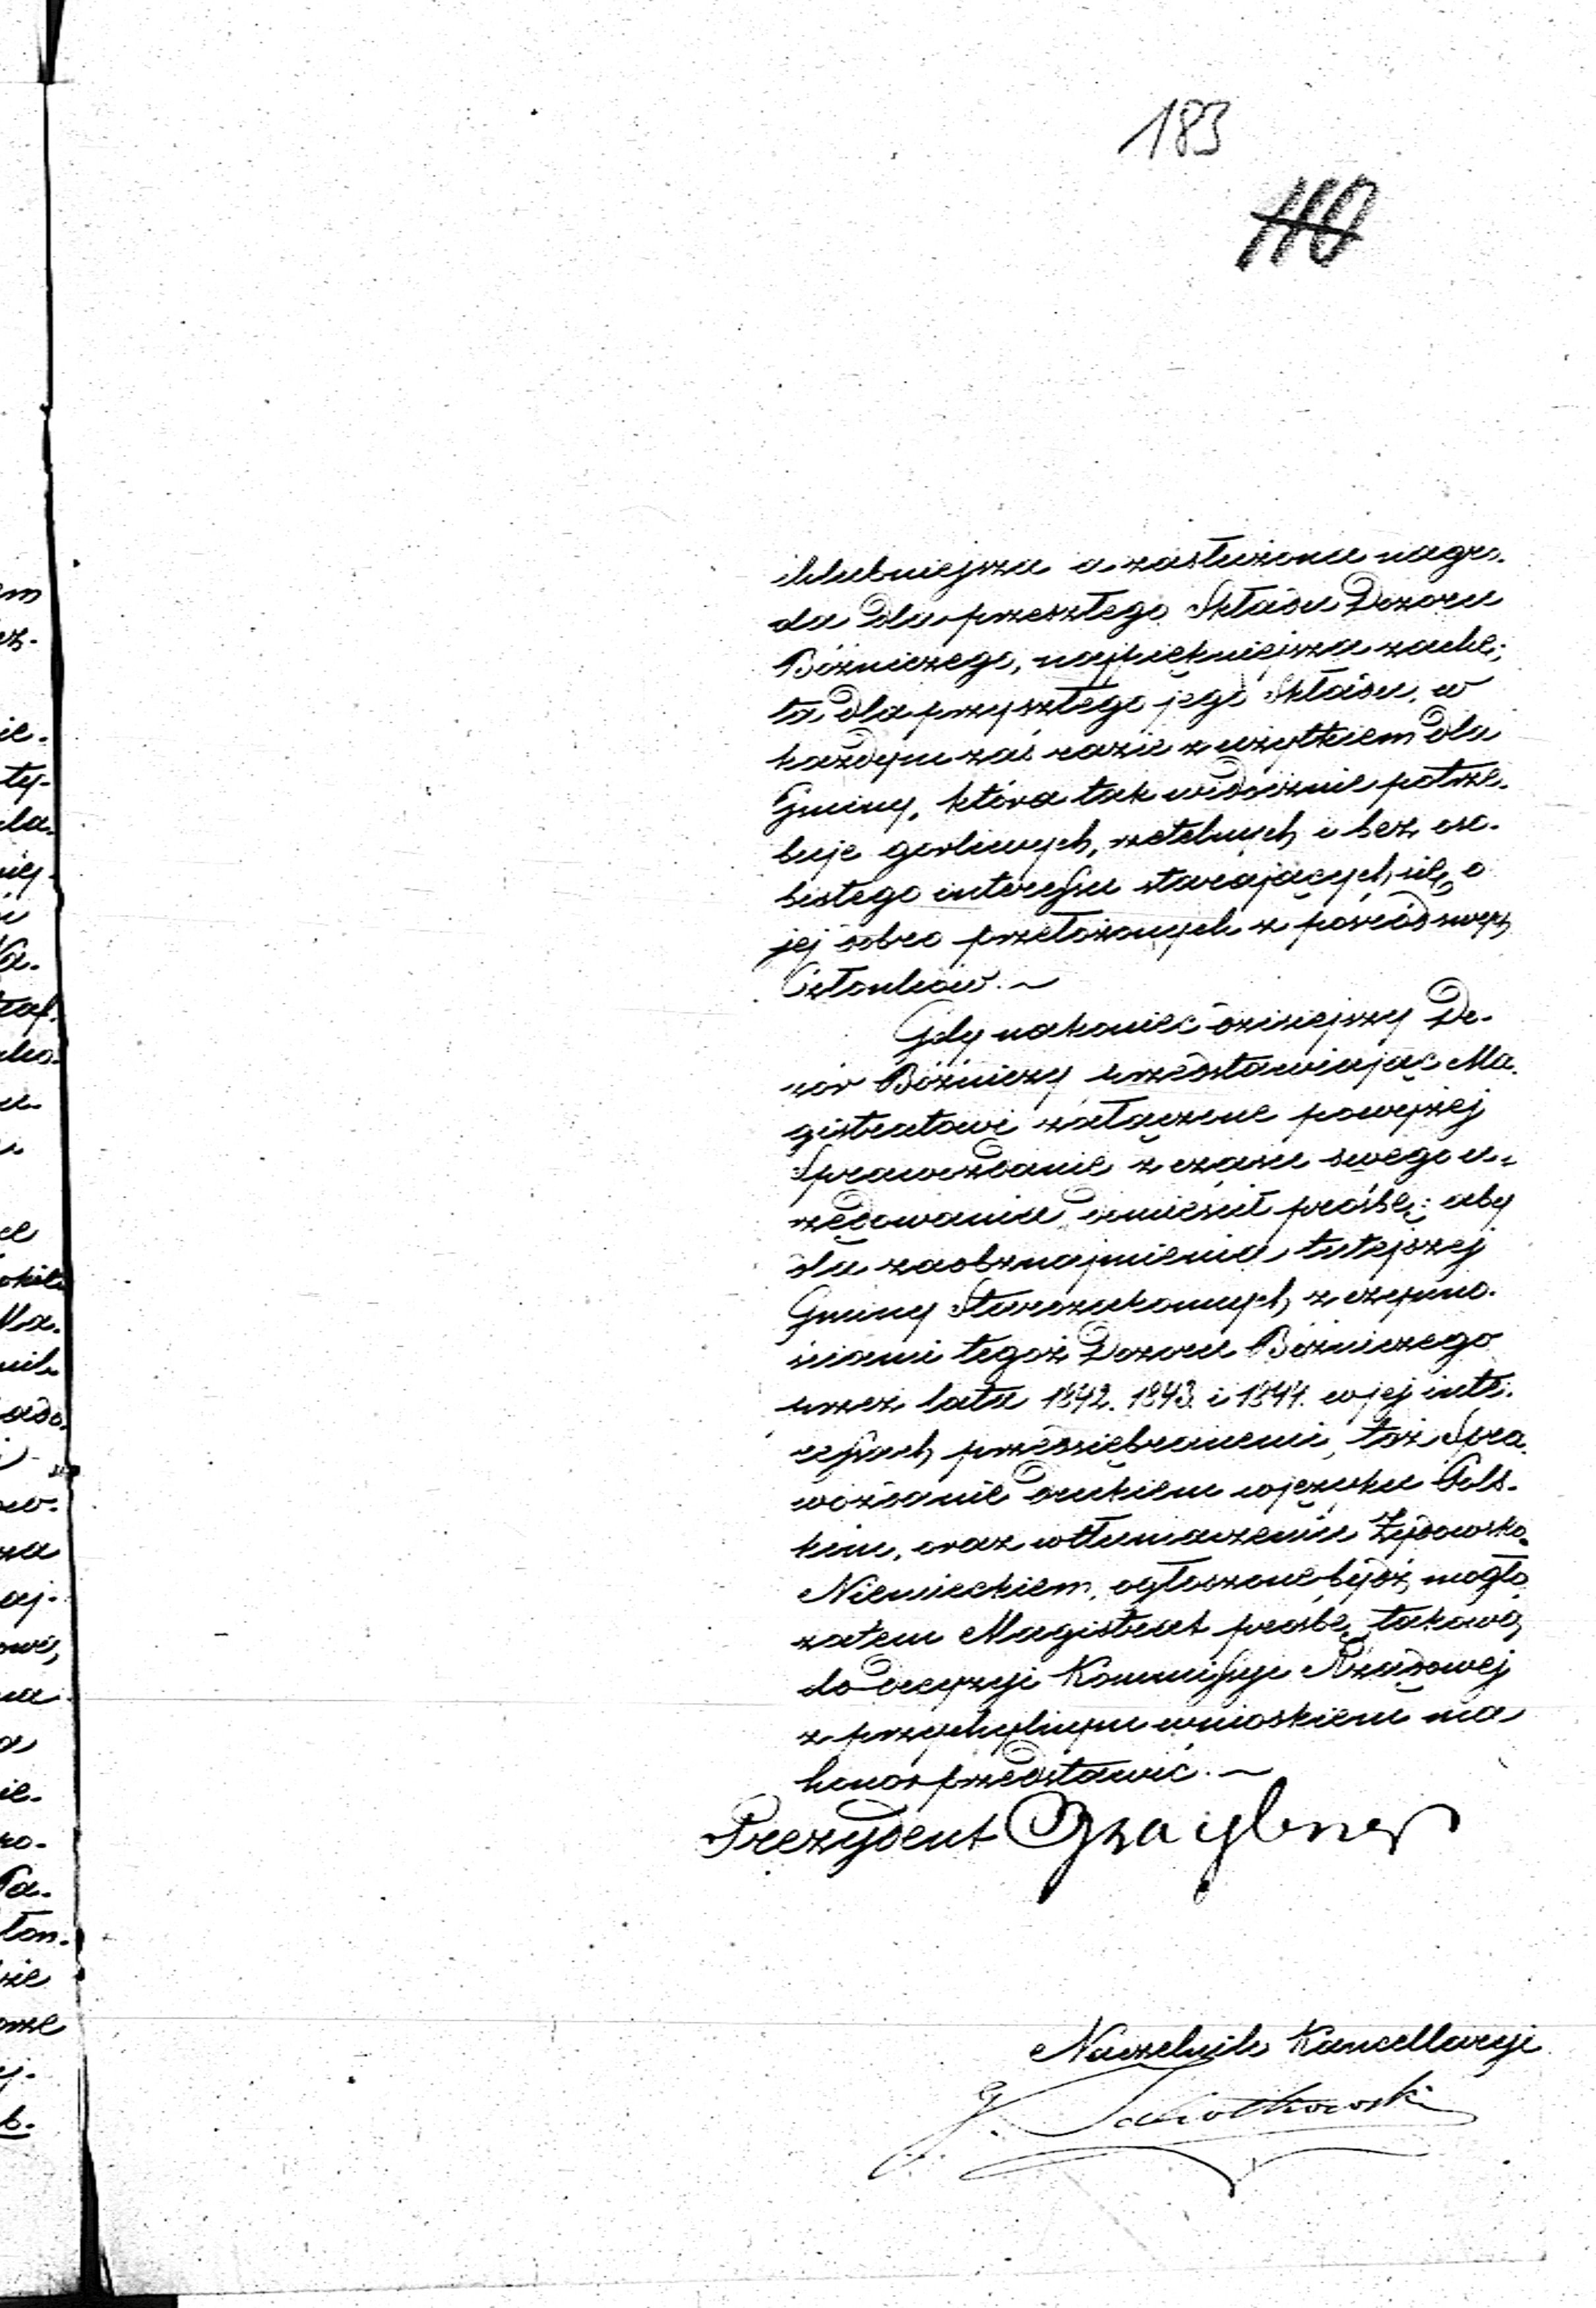 183
110
chlubniejsza a zasłużona nagro-
da dla przeszłego Składu Dozoru
Bóżniczego, najpiękniejsza zachę-
ta dla przyszłego jego Składu, w
każdym zaś razie z użytkiem dla
Gminy, która tak widocznie potrze-
buje gorliwych, rzetelnych i bez oso-
bistego interessu starających się o
jej dobro przełożonych z pośród swych
Członków. ~
Gdy nakoniec dzisiejszy Do-
zór Bóżniczy przedstawiając Ma-
gistratowi załączone powyżej
Sprawozdanie z czasu swego u-
rzędowania, zamieścił prośbę: aby
dla zaobznajmienia tutejszej
Gminy Starozakonnych z czynno-
ściami tegoż Dozoru Bóżniczego
przez lata 1842. 1843. i 1844. w jej inte-
ressach przedsiębranemi, toż Spra-
wozdanie drukiem w języku Pols-
kim, oraz w tłumaczeniu Żydowsko-
Niemieckiem, ogłoszone bydź mogło
zatem Magistrat prośbę takową
do decyzyi Kommissyi Rządowej
z przychylnym wnioskiem ma
honor przedstawić. ~
Prezydent Graybner
Naczelnik Kancellaryi